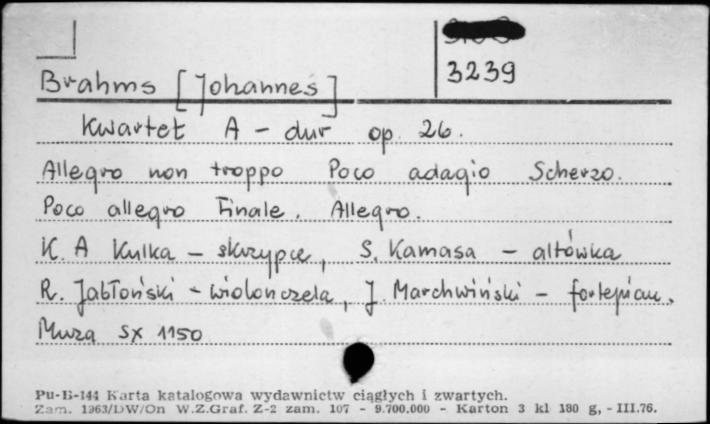 3239
Brahms [Johannes]
Kwartet A-dur op. 26.
Allegro non troppo Poco adagio Scherzo.
Poco allegro Finale. Allegro.
K. A Kulka - skrzypce, S. Kamasa - altówka
R. Jabłoński - wiolonczela, J. Marchwiński - fortepian.
Muza SX 1150
Pu-B-144 Karta katalogowa wydawnictw ciągłych i zwartych.
Zam. 1963/DW/On W.Z.Graf. Z-2 zam. 107 - 9.700.000 - Karton 3 kl 180 g, - III.76.